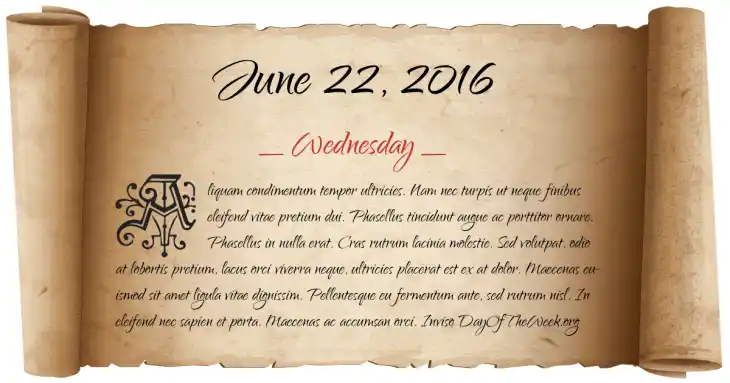 June 22, 2016
_ Wednesday _
Aliquam condimentum tempor ultricies. Nam nec turpis ut neque finibus
eleifend vitae pretium dui. Phasellus tincidunt augue ac porttitor ornare.
Phasellus in nulla erat. Cras rutrum lacinia molestie. Sed volutpat, odio
at lobortis pretium, lacus orci viverra neque, ultricies placerat est ex at dolor. Maecenas eu-
ismod sit amet ligula vitae dignissim. Pellentesque eu fermentum ante, sed rutrum nisl. In
eleifend nec sapien et porta. Maecenas ac accumsan orci. Inviso DayOfTheWeek.org